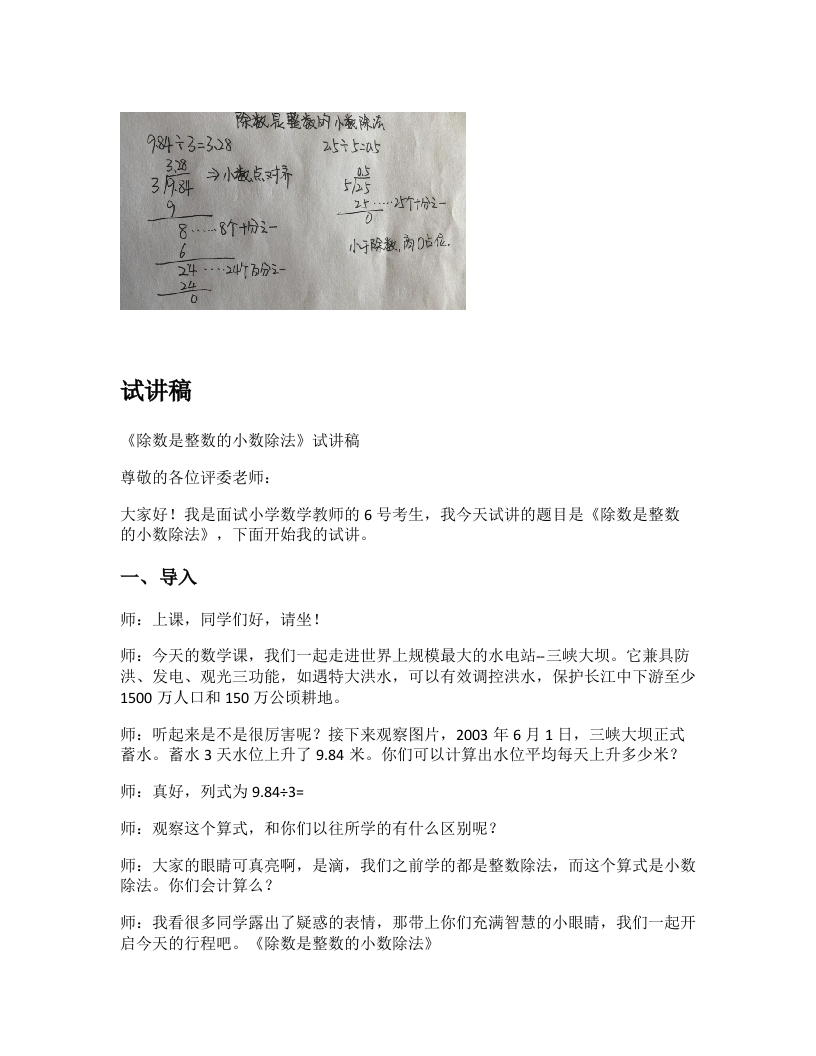 除数是整数的小数除法
9.84÷3=3.28
2.5÷5=0.5
3.28
3 9.84
⇒小数点对齐
9
8……8个十分之一
6
24····24个百分之一
24
0
0.5
5 2.5
25·····25个十分之一
0
小于除数,商0占位.
试讲稿
《除数是整数的小数除法》试讲稿
尊敬的各位评委老师：
大家好！我是面试小学数学教师的 6 号考生，我今天试讲的题目是《除数是整数
的小数除法》，下面开始我的试讲。
一、导入
师：上课，同学们好，请坐！
师：今天的数学课，我们一起走进世界上规模最大的水电站--三峡大坝。它兼具防
洪、发电、观光三功能，如遇特大洪水，可以有效调控洪水，保护长江中下游至少
1500 万人口和 150 万公顷耕地。
师：听起来是不是很厉害呢？接下来观察图片，2003 年 6 月 1 日，三峡大坝正式
蓄水。蓄水 3 天水位上升了 9.84 米。你们可以计算出水位平均每天上升多少米？
师：真好，列式为 9.84÷3=
师：观察这个算式，和你们以往所学的有什么区别呢？
师：大家的眼睛可真亮啊，是滴，我们之前学的都是整数除法，而这个算式是小数
除法。你们会计算么？
师：我看很多同学露出了疑惑的表情，那带上你们充满智慧的小眼睛，我们一起开
启今天的行程吧。《除数是整数的小数除法》